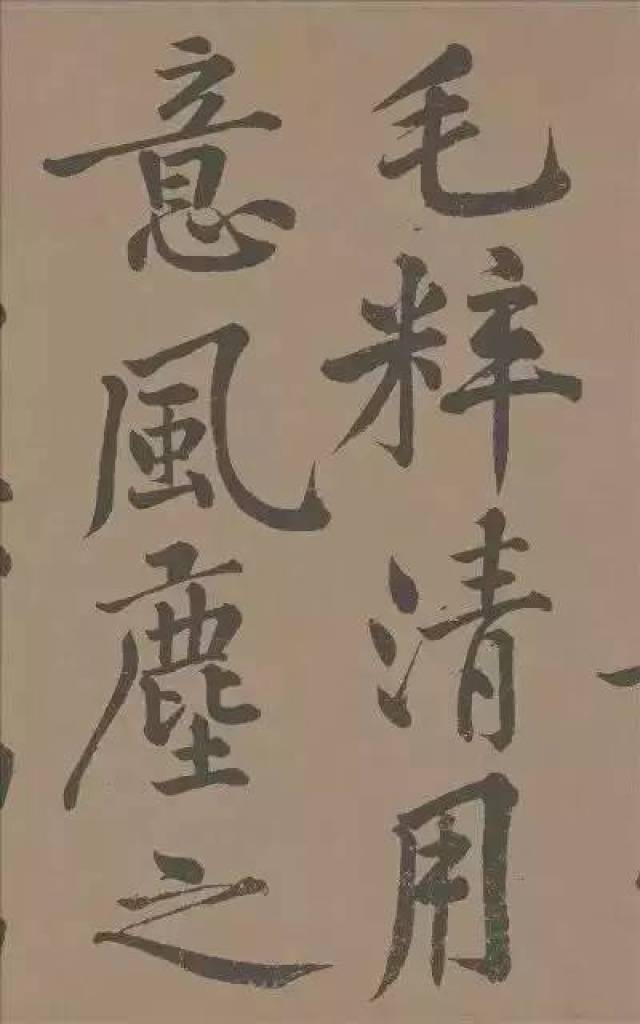 毛粹清用
意風塵之